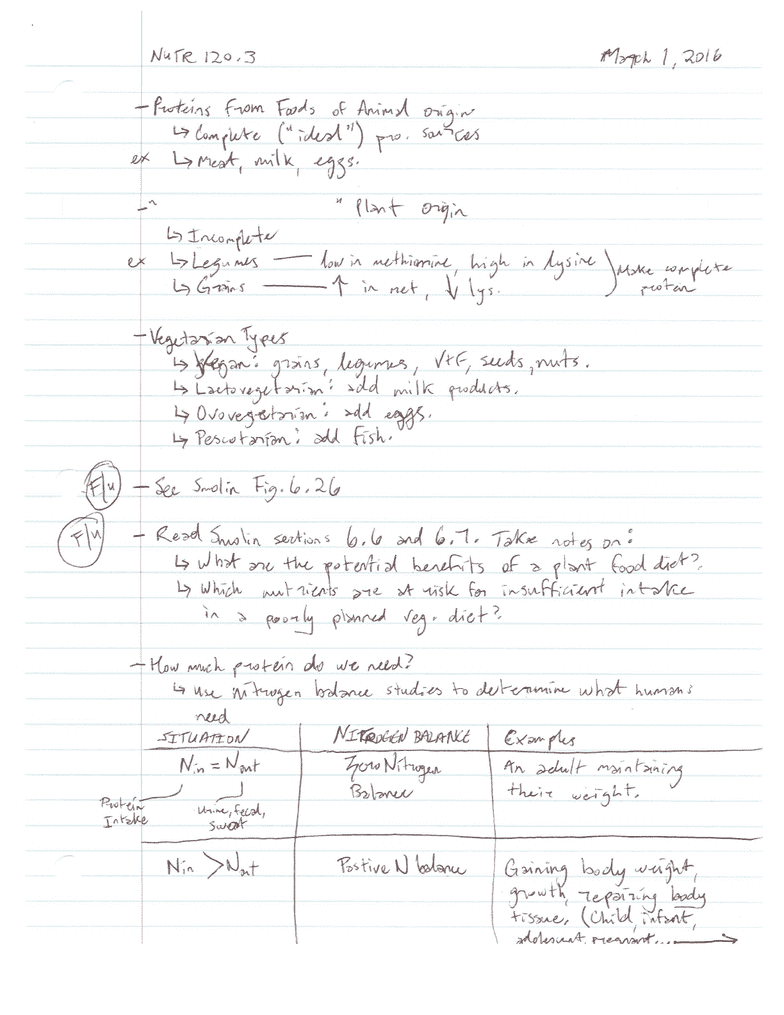 NUTR 120.3 March 1, 2016
- Proteins From Foods of Animal origin
↳ Complete ("ideal") pro. sources
ex ↳ Meat, milk, eggs.
- " " Plant origin
↳ Incomplete
ex ↳ Legumes — low in methionine, high in lysine } Make complete
↳ Grains — ↑ in met, ↓ lys. protein
- Vegetarian Types
↳ Vegan: grains, legumes, V+F, seeds, nuts.
↳ Lactovegetarian: add milk products.
↳ Ovovegetarian: add eggs.
↳ Pescotarian: add fish.
F/u - See Smolin Fig. 6.26
F/u - Read Smolin sections 6.6 and 6.7. Take notes on:
↳ What are the potential benefits of a plant food diet?
↳ Which nutrients are at risk for insufficient intake
in a poorly planned veg. diet?
- How much protein do we need?
↳ Use nitrogen balance studies to determine what humans
need
SITUATION NITROGEN BALANCE Examples
Nin = Nout Zero Nitrogen An adult maintaining
Balance their weight.
Protein Urine, fecal,
Intake sweat
Nin > Nout Postive N balance Gaining body weight,
growth, repairing body
tissue, (Child, infant,
adolescent, pregnant... →